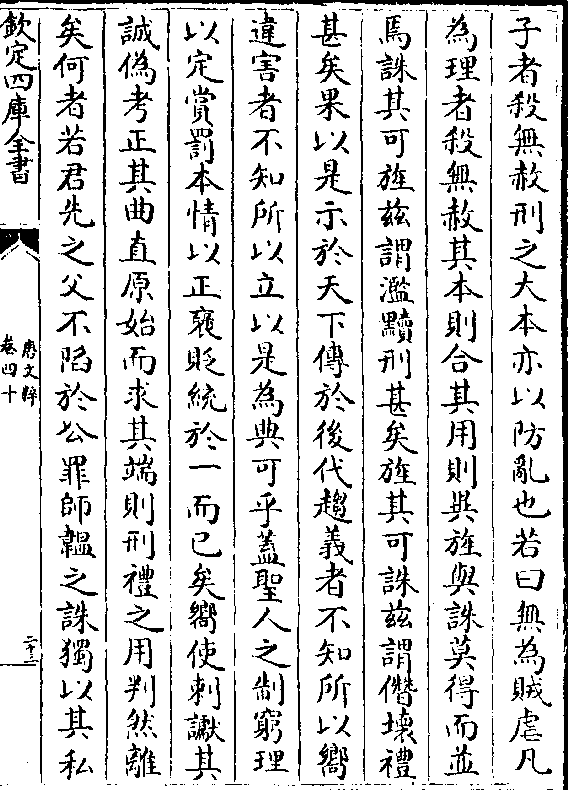 子者殺無赦刑之大本亦以防亂也若曰無為賊虐凡
為理者殺無赦其本則合其用則異旌與誅莫得而並
焉誅其可旌茲謂濫黷刑甚矣旌其可誅茲謂僭壞禮
甚矣果以是示於天下傳於後代趨義者不知所以嚮
違害者不知所以立以是為典可乎蓋聖人之制窮理
以定賞罰本情以正襃貶統於一而已矣嚮使刺讞其
誠偽考正其曲直原始而求其端則刑禮之用判然離
矣何者若君先之父不陷於公罪師韞之誅獨以其私
欽定四庫全書
唐文粹
卷四十
二十三